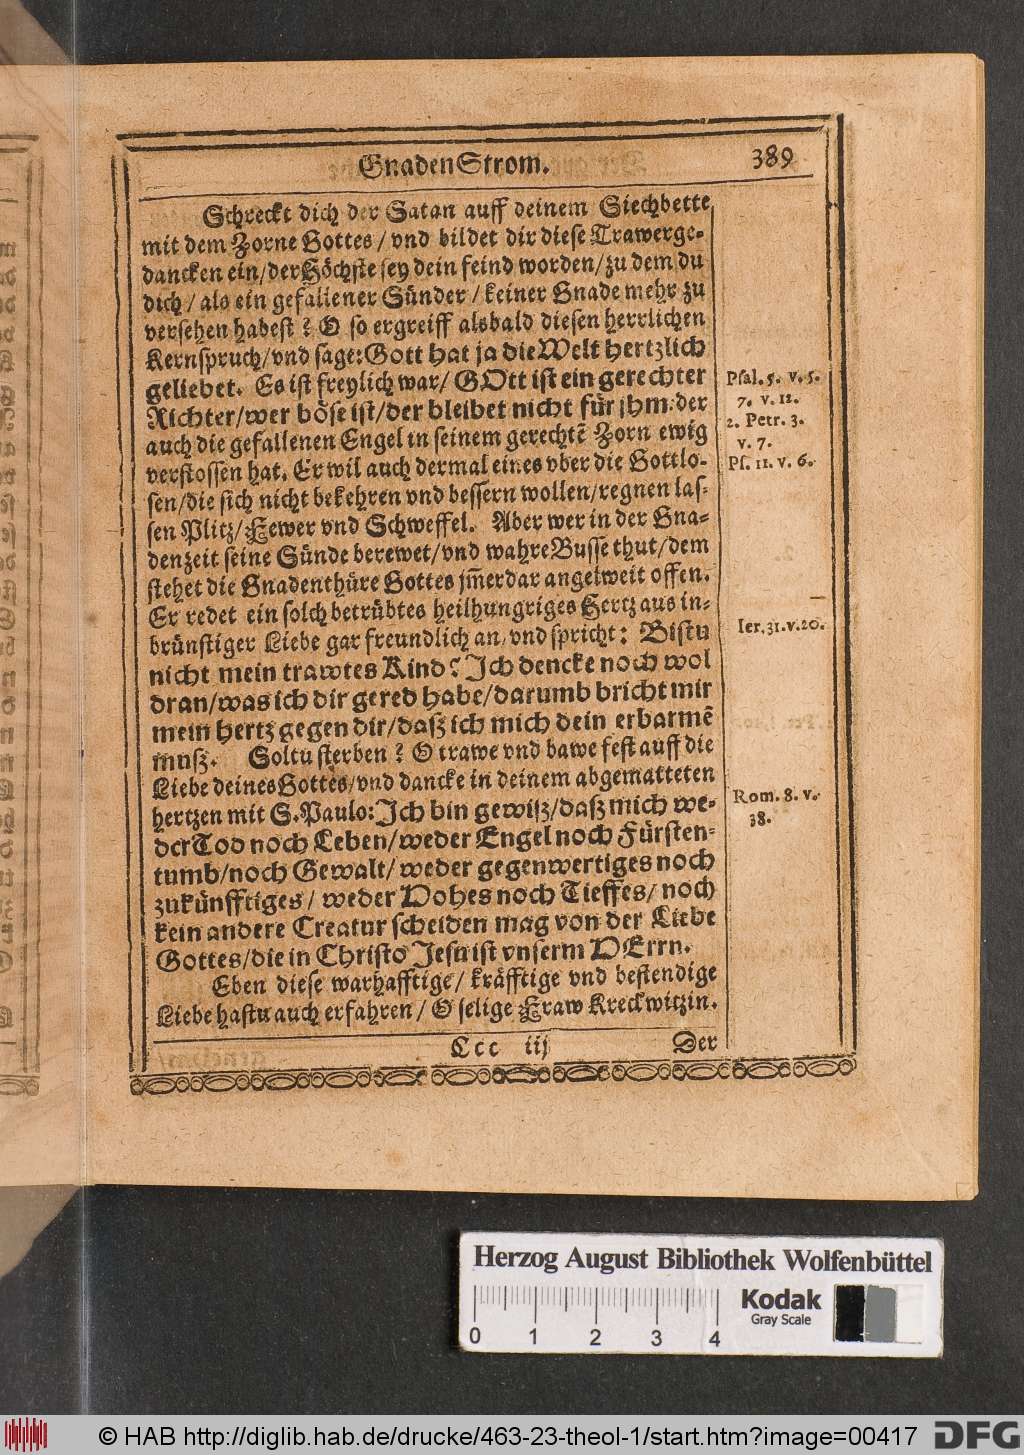 GnadenStrom. 389
Schreckt dich der Satan auff deinem Siechbette
mit dem Zorne Gottes / vnd bildet dir diese Trawerge-
dancken ein / der Höchste sey dein feind worden / zu dem du
dich / als ein gefallener Sünder / keiner Gnade mehr zu
versehen habest ? O so ergreiff alsbald diesen herrlichen
Kernspruch / vnd sage: Gott hat ja die Welt hertzlich
geliebet. Es ist freylich war / GOtt ist ein gerechter
Richter / wer böse ist / der bleibet nicht für jhm: der
auch die gefallenen Engel in seinem gerechtē Zorn ewig
verstossen hat. Er wil auch dermal eines vber die Gottlo-
sen / die sich nicht bekehren vnd bessern wollen / regnen las-
sen Plitz / Fewer vnd Schweffel. Aber wer in der Gna-
denzeit seine Sünde berewet / vnd wahre Busse thut / dem
stehet die Gnadenthüre Gottes jm̄erdar angelweit offen.
Er redet ein solch betrübtes heilhungriges Hertz aus in-
brünstiger Liebe gar freundlich an, vnd spricht: Bistu
nicht mein trawtes Kind? Ich dencke noch wol
dran / was ich dir gered habe / darumb bricht mir
mein hertz gegen dir / daß ich mich dein erbarmē
muß. Soltu sterben ? O trawe vnd bawe fest auff die
Liebe deines Gottes / vnd dancke in deinem abgematteten
hertzen mit S. Paulo: Ich bin gewiß / daß mich we-
der Tod noch Leben / weder Engel noch Fürsten-
tumb / noch Gewalt / weder gegenwertiges noch
zukünfftiges / weder Hohes noch Tieffes / noch
kein andere Creatur scheiden mag von der Liebe
Gottes / die in Christo Jesu ist vnserm HErrn.
Eben diese warhafftige / kräfftige vnd bestendige
Liebe hastu auch erfahren / O selige Fraw Kreckwitzin.
Ccc iij Der
Psal. 5. v. 5.
7. v. 12.
2. Petr. 3.
v. 7.
Ps. 11. v. 6.
Ier. 31. v. 20.
Rom. 8. v.
38.
Herzog August Bibliothek Wolfenbüttel
0 1 2 3 4
Kodak
Gray Scale
© HAB http://diglib.hab.de/drucke/463-23-theol-1/start.htm?image=00417
DFG